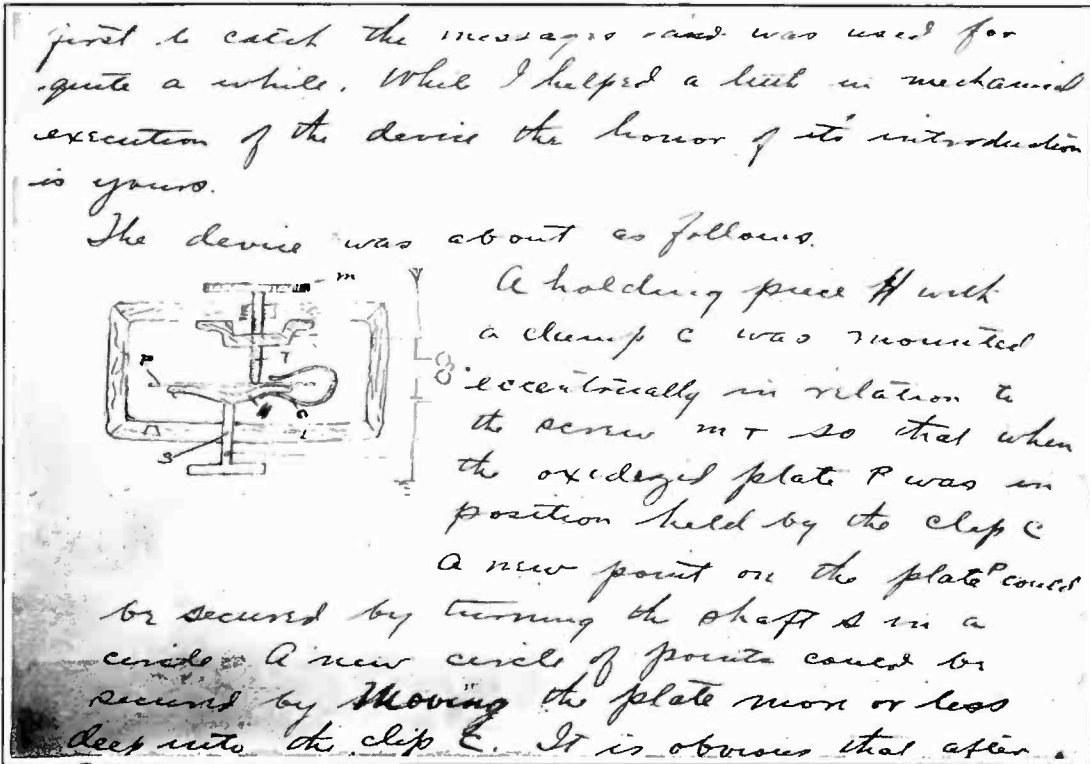 first to catch the messages and was used for
quite a while. While I helped a little in mechanical
execution of the device the honor of it's introduction
is yours.
The device was about as follows.
m
A holding piece H with
a clamp C was mounted
eccentrically in relation to
the screw m T so that when
the oxidezed plate P was in
position held by the clip C
a new point on the plate P could
T
P
H
C
S
be secured by turning the shaft S in a
circle. A new circle of points could be
secured by Moving the plate more or less
deep into the clip C. It is obvious that after